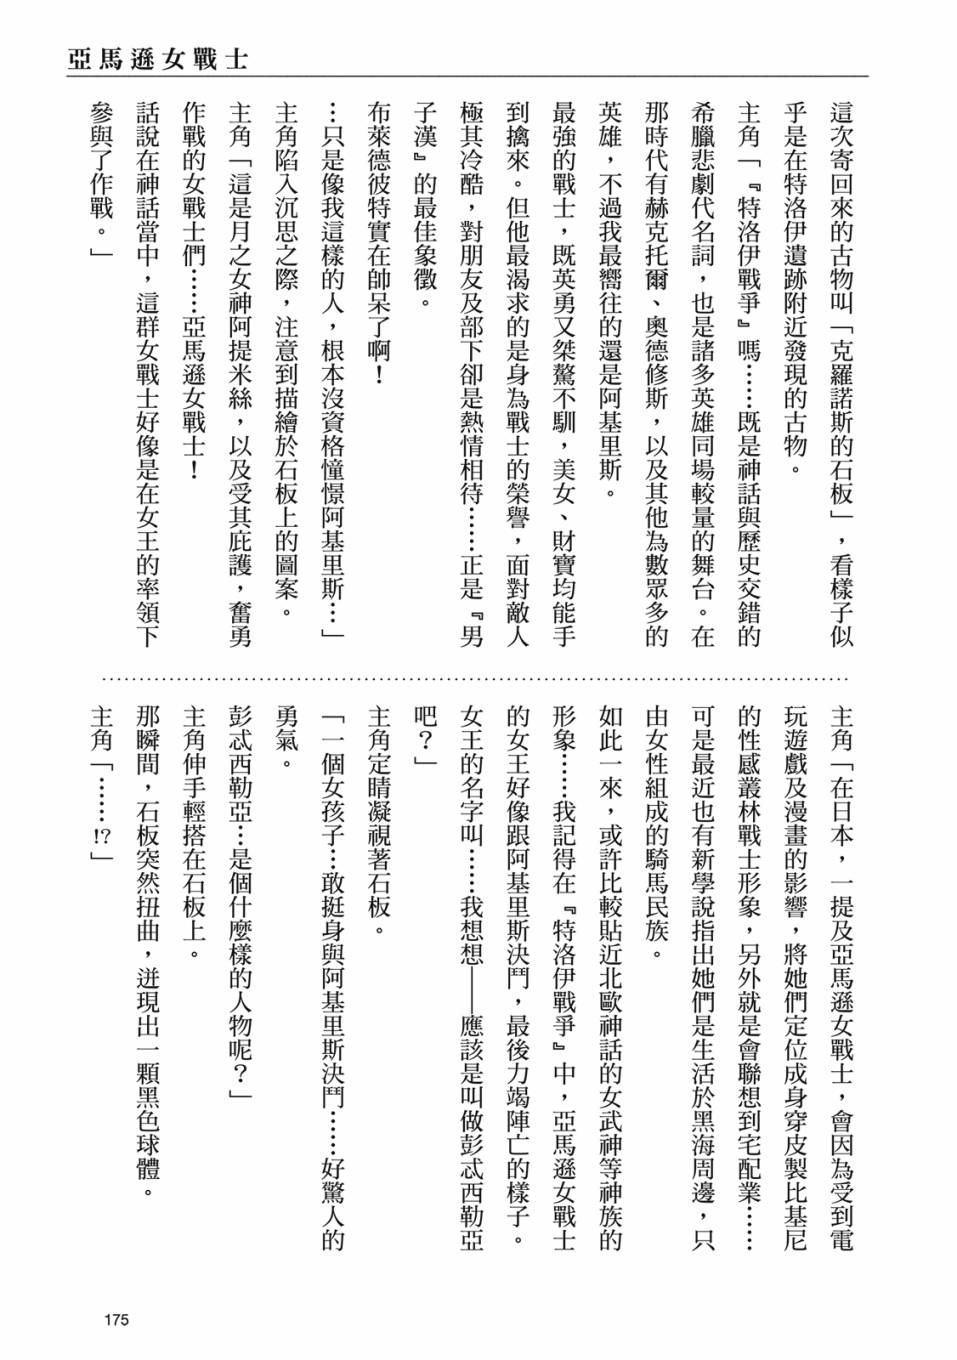 亞馬遜女戰士
這次寄回來的古物叫「克羅諾斯的石板」，看樣子似
乎是在特洛伊遺跡附近發現的古物。
主角「『特洛伊戰爭』嗎……既是神話與歷史交錯的
希臘悲劇代名詞，也是諸多英雄同場較量的舞台。在
那時代有赫克托爾、奧德修斯，以及其他為數眾多的
英雄，不過我最嚮往的還是阿基里斯。
最強的戰士，既英勇又桀驁不馴，美女、財寶均能手
到擒來。但他最渴求的是身為戰士的榮譽，面對敵人
極其冷酷，對朋友及部下卻是熱情相待……正是『男
子漢』的最佳象徵。
布萊德彼特實在帥呆了啊！
…只是像我這樣的人，根本沒資格憧憬阿基里斯…」
主角陷入沉思之際，注意到描繪於石板上的圖案。
主角「這是月之女神阿提米絲，以及受其庇護，奮勇
作戰的女戰士們……亞馬遜女戰士！
話說在神話當中，這群女戰士好像是在女王的率領下
參與了作戰。」
主角「在日本，一提及亞馬遜女戰士，會因為受到電
玩遊戲及漫畫的影響，將她們定位成身穿皮製比基尼
的性感叢林戰士形象，另外就是會聯想到宅配業……
可是最近也有新學說指出她們是生活於黑海周邊，只
由女性組成的騎馬民族。
如此一來，或許比較貼近北歐神話的女武神等神族的
形象……我記得在『特洛伊戰爭』中，亞馬遜女戰士
的女王好像跟阿基里斯決鬥，最後力竭陣亡的樣子。
女王的名字叫……我想想——應該是叫做彭忒西勒亞
吧？」
主角定睛凝視著石板。
「一個女孩子…敢挺身與阿基里斯決鬥……好驚人的
勇氣。
彭忒西勒亞…是個什麼樣的人物呢？」
主角伸手輕搭在石板上。
那瞬間，石板突然扭曲，迸現出一顆黑色球體。
主角「……!?」
175